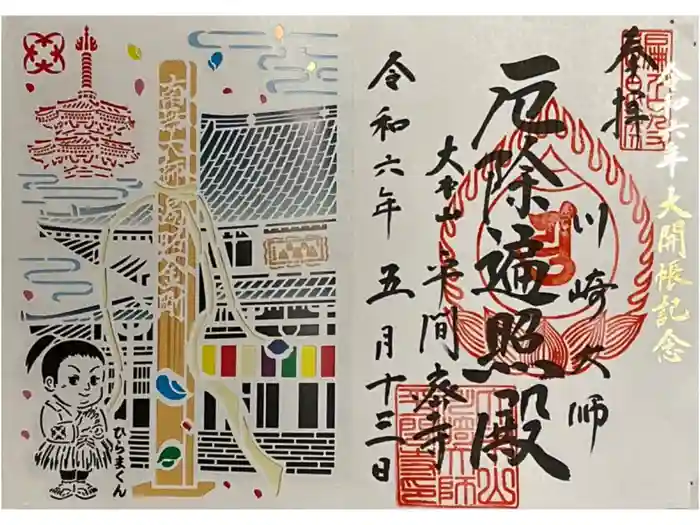 奉拝
令和六年大開帳記念
川崎大師
厄除遍照殿
大本山
平間寺
令和六年五月十三日
南無大師遍照金剛
ひらまくん